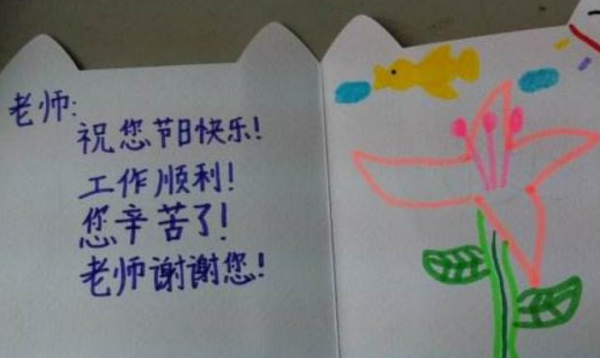 老师:
祝您节日快乐!
工作顺利!
您辛苦了!
老师谢谢您!